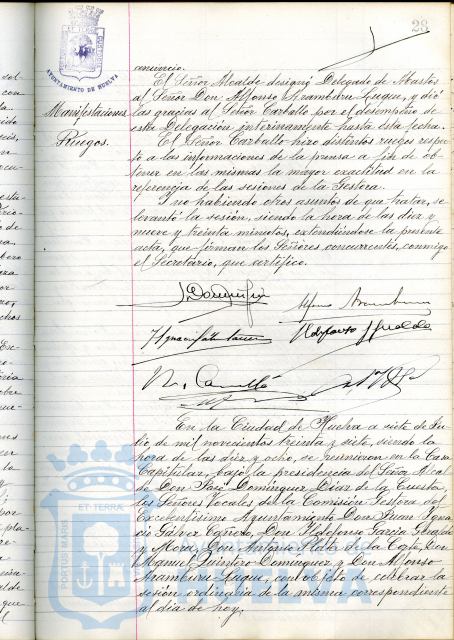 28
AYUNTAMIENTO DE HUELVA
Manifestaciones
Ruegos.
anuncio.
El Señor Alcalde designó Delegado de Abastos
al Señor Don Alfonso Aramburu Luque, y dió
las gracias al Señor Carballo por el desempeño de
esta Delegación interinamente hasta esta fecha.
El Señor Carballo hizo distintos ruegos respec-
to a las informaciones de la prensa a fin de ob-
tener en las mismas la mayor exactitud en la
referencia de las sesiones de la Gestora.
Y no habiendo otros asuntos de que tratar, se
levantó la sesión, siendo la hora de las diez y
nueve y treinta minutos, extendiéndose la presente
acta, que firman los Señores concurrentes, conmigo
el Secretario, que certifico.
J. Domínguez
Alfonso Aramburu
Ildefonso
En la Ciudad de Huelva a siete de Ju-
lio de mil novecientos treinta y siete, siendo la
hora de las diez y ocho, se reunieron en la Casa
Capitular, bajo la presidencia del Señor Alcal-
de Don José Domínguez Díaz de la Cuesta,
los Señores Vocales de la Comisión Gestora del
Excelentísimo Ayuntamiento Don Juan Igna-
cio Gálvez Cañedo, Don Ildefonso García Giraldo
y Mora, Don Antonio Plata de la Corte, Don
Manuel Quintero Domínguez y Don Alfonso
Aramburu Luque, con objeto de celebrar la
sesión ordinaria de la misma correspondiente
al día de hoy.
ET TERRAE
PORTUS MARIS
HUELVA